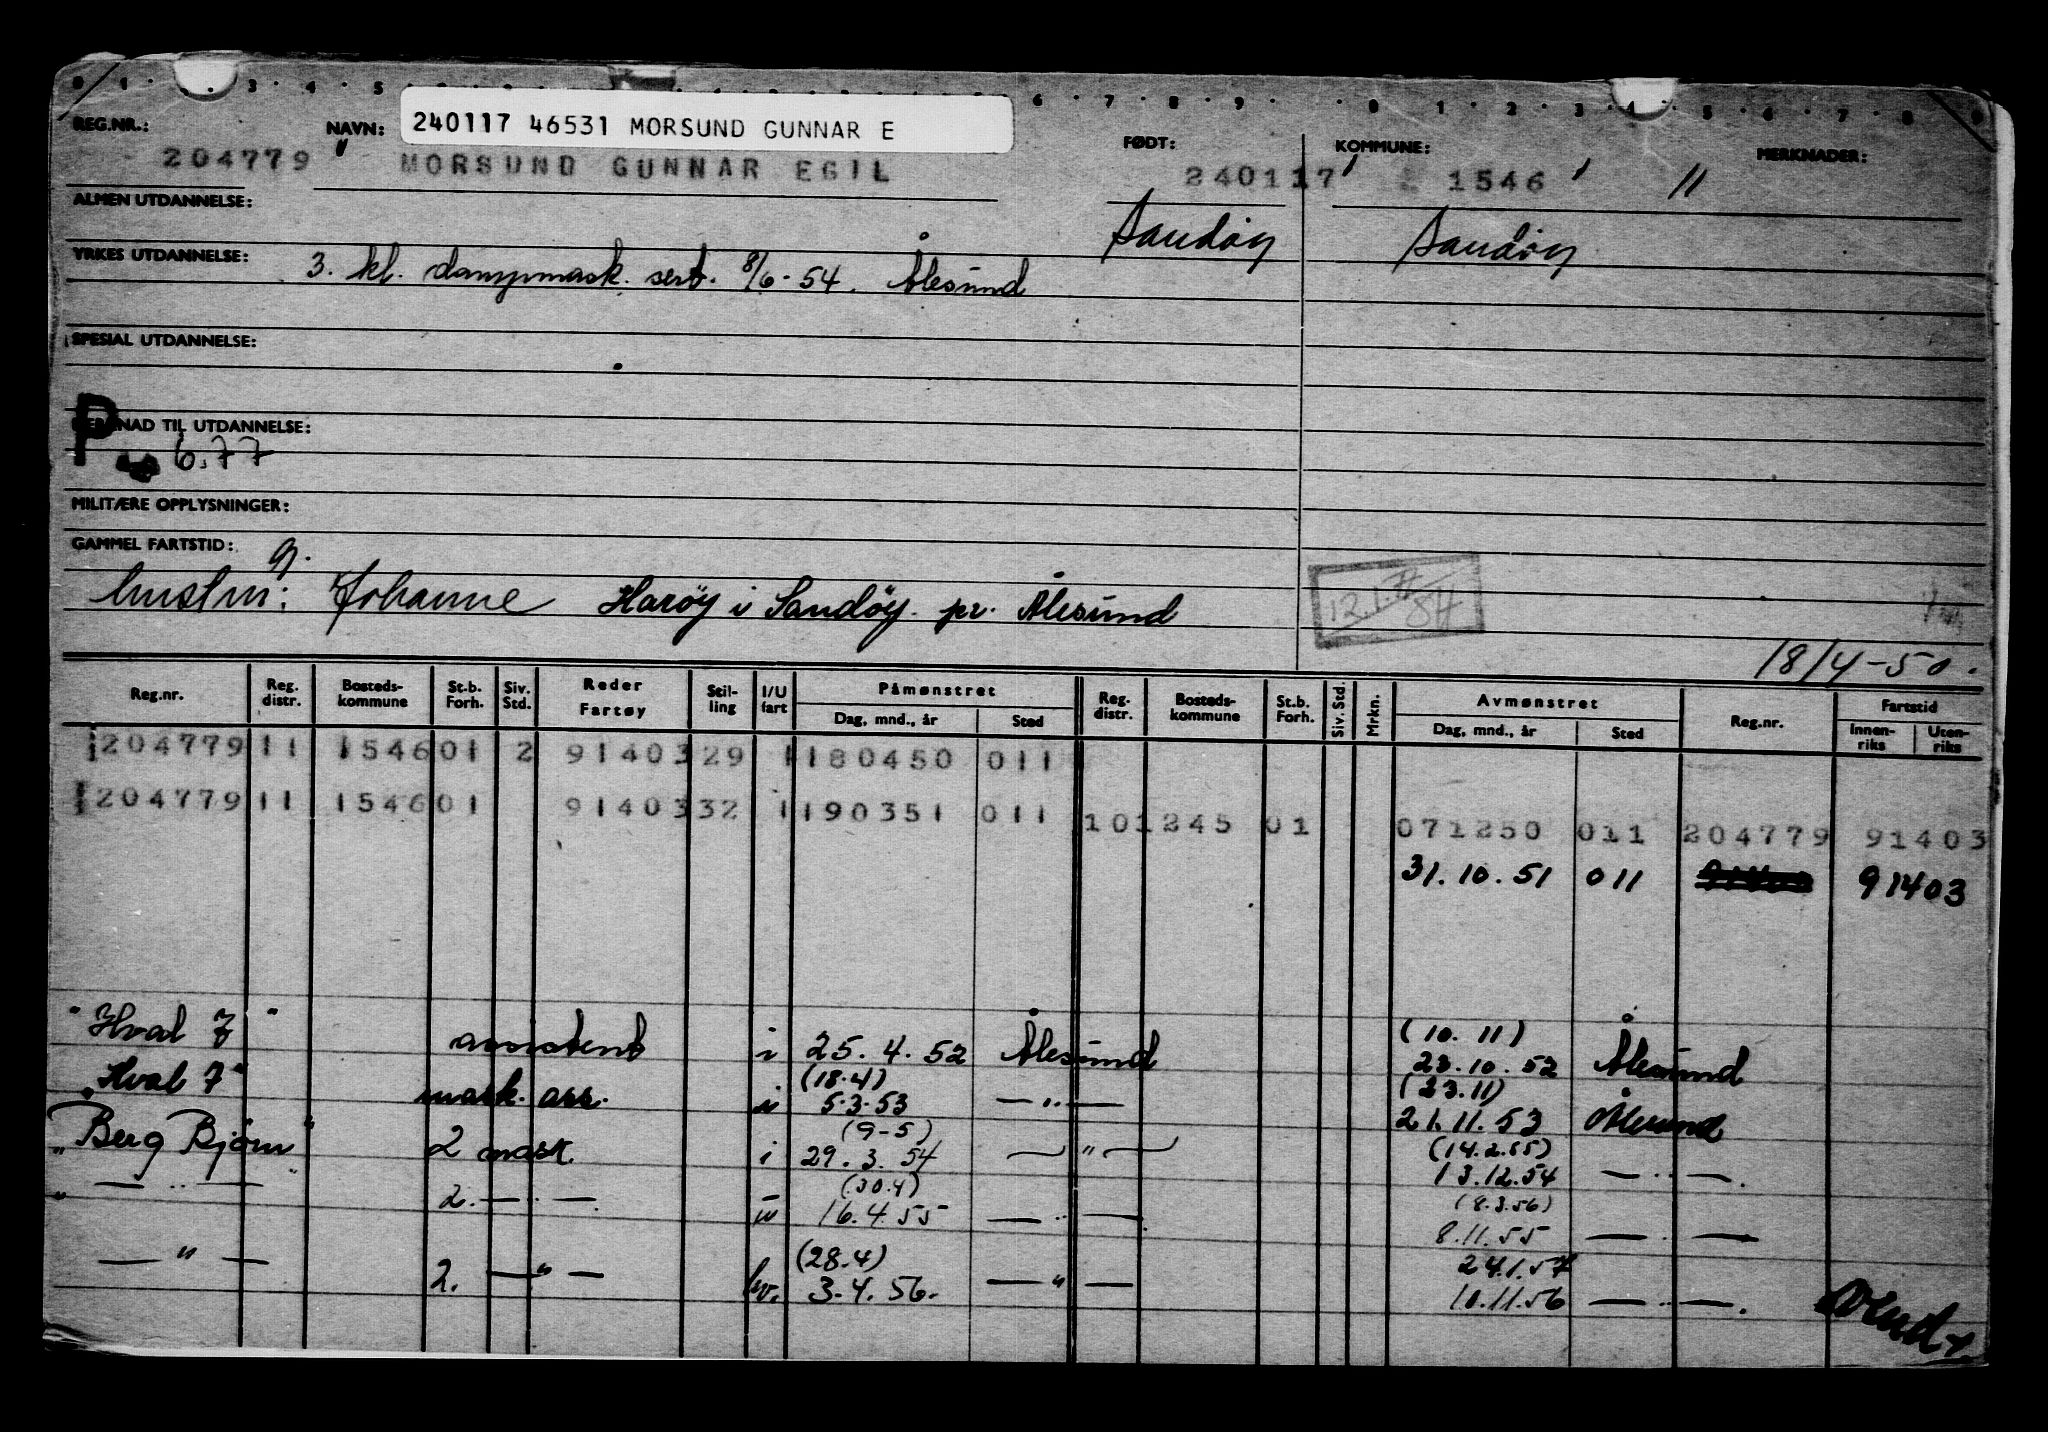 240117 46531 MORSUND GUNNAR E
REG.NR.: NAVN: FØDT: KOMMUNE: MERKNADER:
204779 " MORSUND GUNNAR EGIL 240117 1546 "
ALMEN UTDANNELSE: Sandøy Sandöy
YRKES UTDANNELSE: 3. kl. dampmask. sert. 8/6-54. Ålesund
SPESIAL UTDANNELSE:
NAD TIL UTDANNELSE:
P 6.77
MILITÆRE OPPLYSNINGER:
GAMMEL FARTSTID: g.
hustru: Johanne Harøy i Sandøy. pr. Ålesund
18/4-50.
Reg.nr. Reg. distr. Bosteds-kommune St.b. Forh. Siv. Std. Reder Fartøy Stil-ling I/U fart Påmønstret Dag, mnd., år Sted Reg. distr. Bosteds-kommune St.b. Forh. Siv. Std. Mrkn. Avmønstret Dag, mnd., år Sted Reg.nr. Fartstid Innen-riks Uten-riks
204779 11 1546 01 2 91403 29 1 180450 011
204779 11 1546 01 91403 32 1 190351 011 101245 01 071250 011 204779 91403
31.10.51 011 91403
(10. 11)
"Hval 7" assistent i 25.4.52 Ålesund 23.10.52 Ålesund
(18.4) (23.11)
"Hval 7" mask. ass. 5.3.53 — " — 21.11.53 Ålesund
(9-5) (14.2.55)
"Berg Bjørn" 2 mask. i 29.3.54 — " — 13.12.54 — " —.
(30.4) (8.3.56)
— " — 2. — " —. 16.4.55 — " — 8.11.55 — " —
(28.4) 24.1.57
— " — 2. — " — hv. 3.4.56. — " — 10.11.56 — " —.
Vend